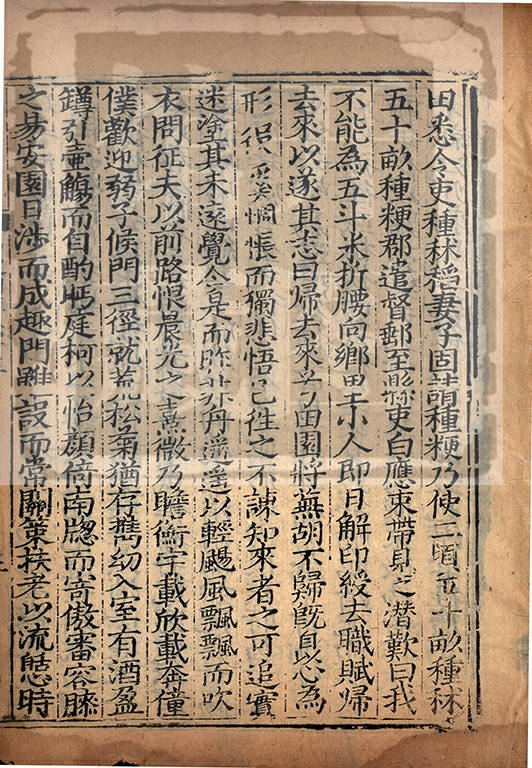 田悉令吏種秫稻妻子固請種粳乃使二頃五十畝種秫
五十畝種粳郡遣督郵至縣吏白應束帶見之潛歎曰我
不能為五斗米折腰向鄉里小人即日解印綬去職賦歸
去來以遂其志曰歸去來兮田園將蕪胡不歸既自以心為
形役奚惆悵而獨悲悟已往之不諫知來者之可追實
迷塗其未遠覺今是而昨非舟遥遥以輕颺風飄飄而吹
衣問征夫以前路恨晨光之熹微乃瞻衡宇載欣載奔僮
僕歡迎弱子候門三徑就荒松菊猶存攜幼入室有酒盈
罇引壺觴而自酌眄庭柯以怡顔倚南牕而寄傲審容膝
之易安園日涉而成趣門雖設而常關策扶老以流憩時